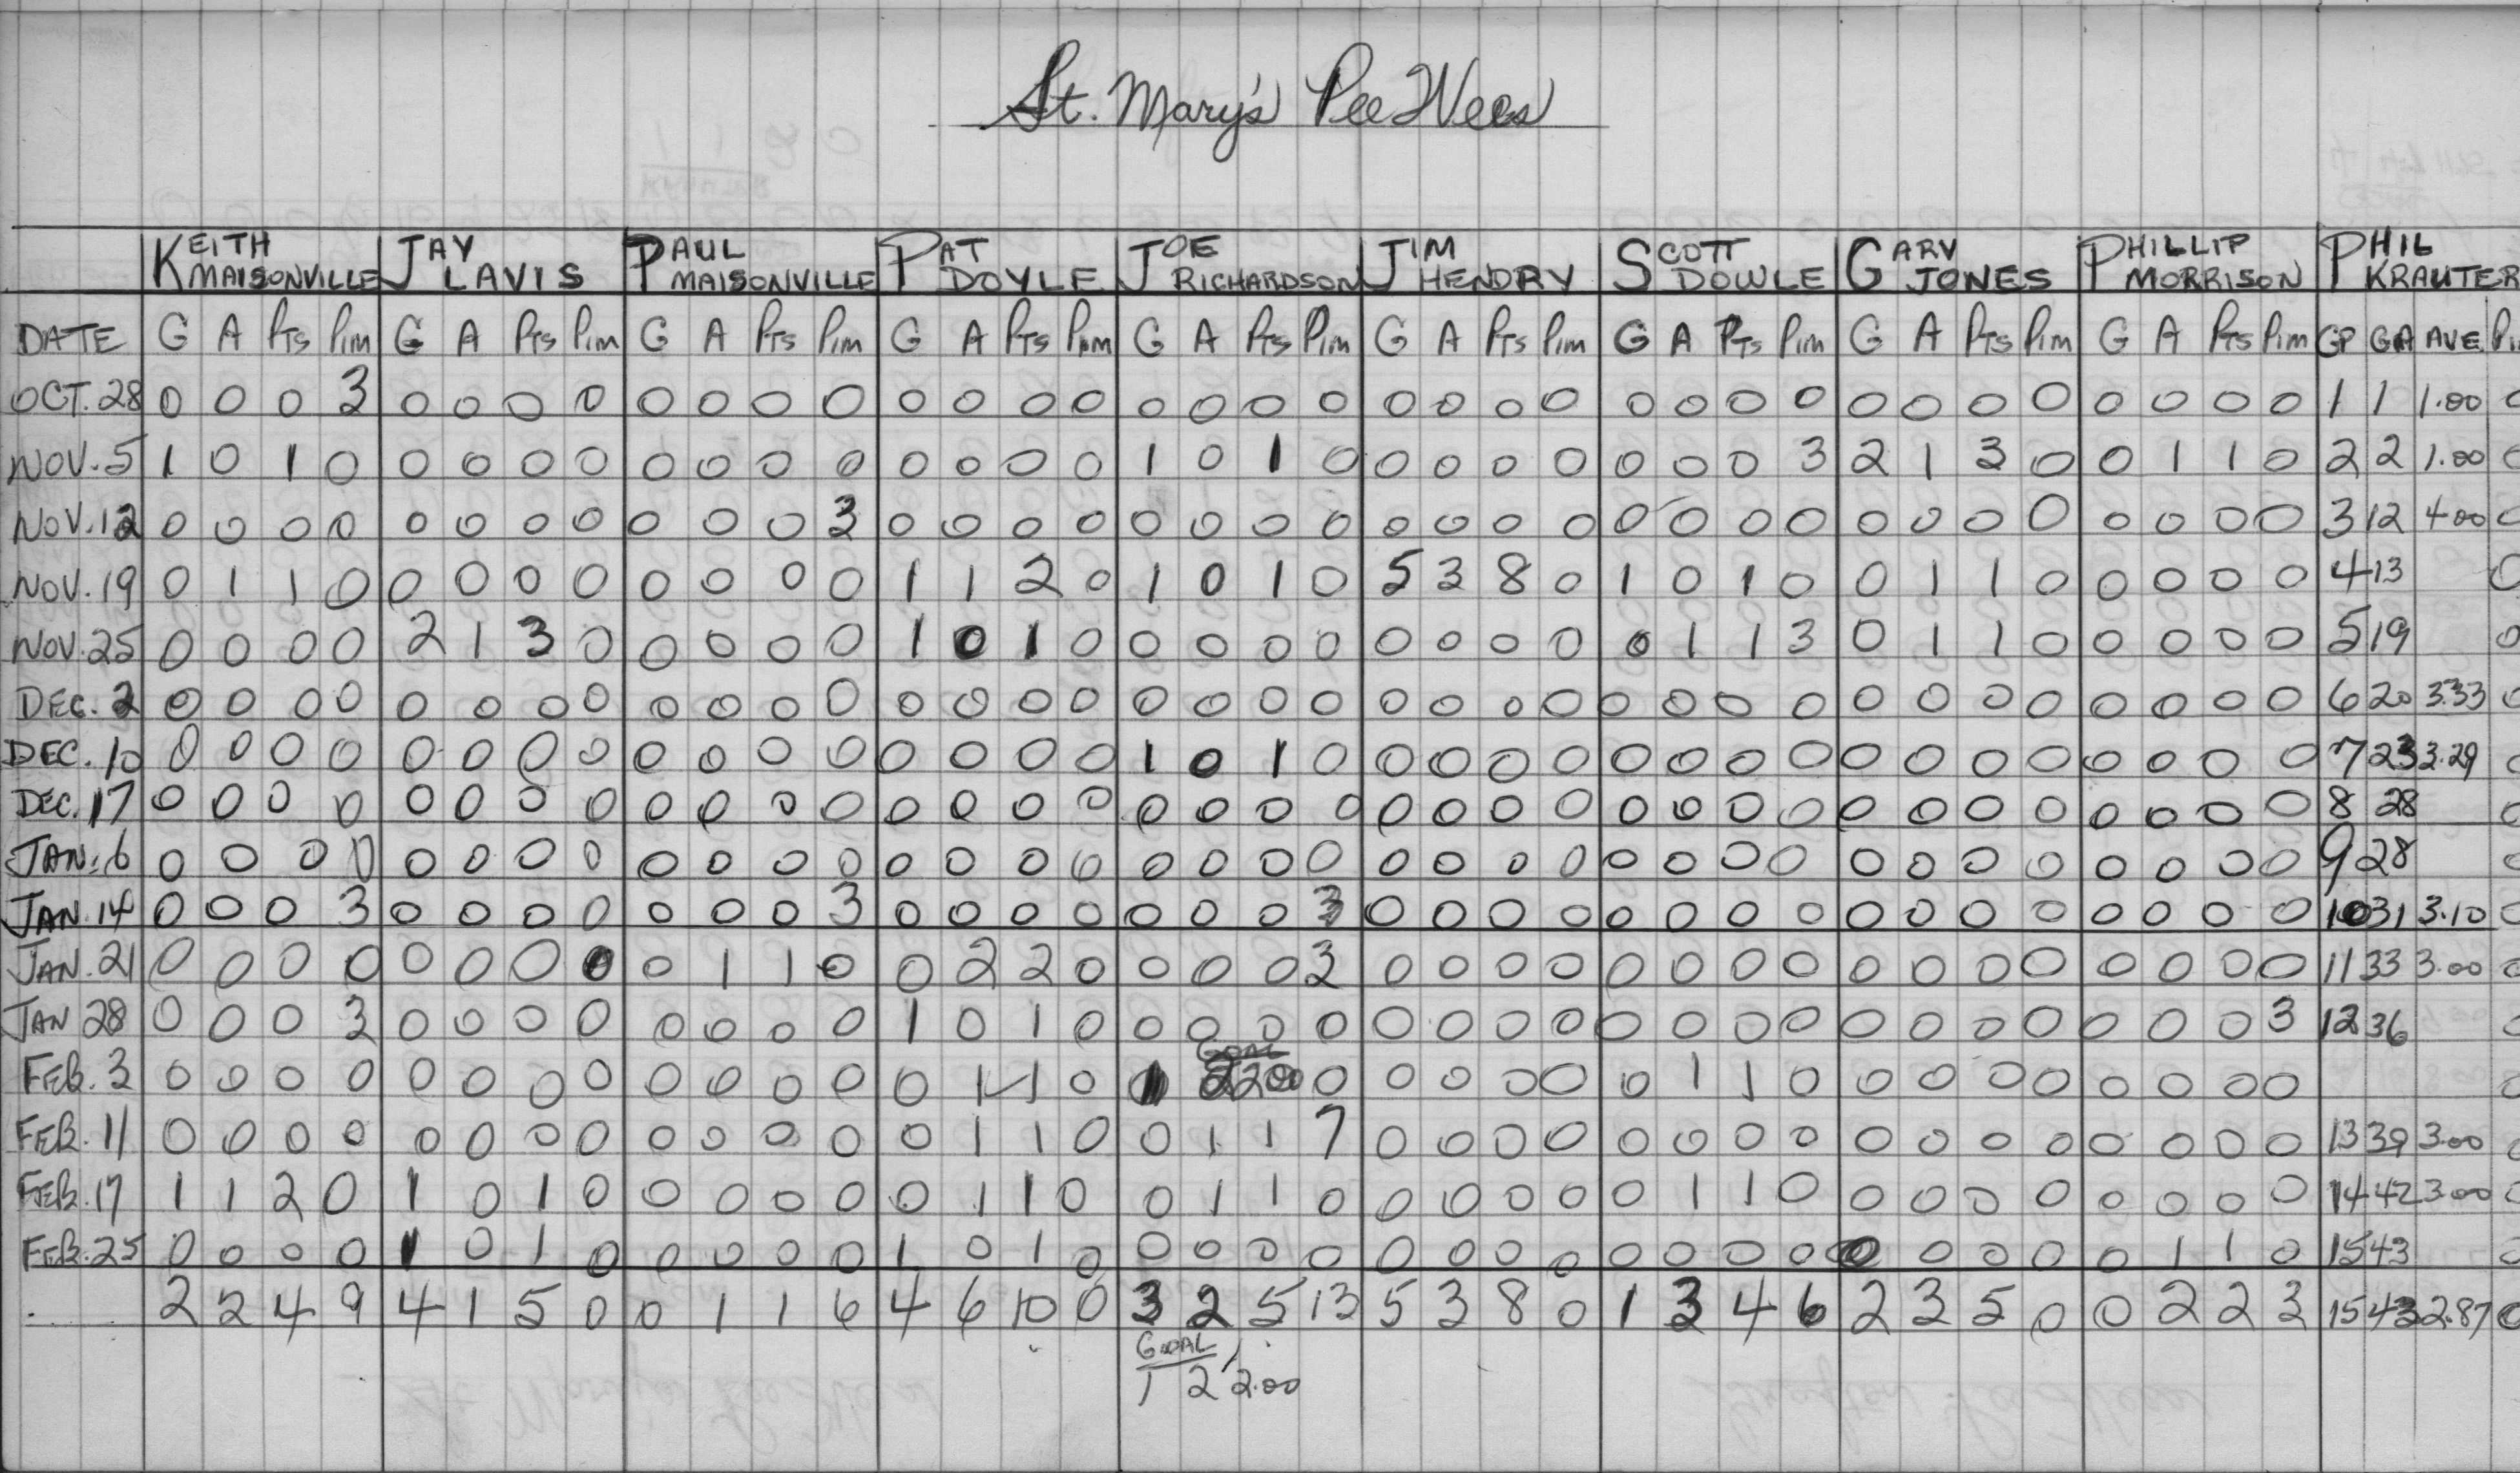 St. Mary's Pee Wees
KEITH MAISONVILLE JAY LAVIS PAUL MAISONVILLE PAT DOYLE JOE RICHARDSON JIM HENDRY SCOTT DOWLE GARY JONES PHILLIP MORRISON PHIL KRAUTER
DATE G A Pts Pim G A Pts Pim G A Pts Pim G A Pts Pim G A Pts Pim G A Pts Pim G A Pts Pim G A Pts Pim G A Pts Pim GP GA AVE.
OCT. 28 0 0 0 3 0 0 0 0 0 0 0 0 0 0 0 0 0 0 0 0 0 0 0 0 0 0 0 0 0 0 0 0 0 0 0 0 1 1 1.00
NOV. 5 1 0 1 0 0 0 0 0 0 0 0 0 0 0 0 0 1 0 1 0 0 0 0 0 0 0 0 3 2 1 3 0 0 1 1 0 2 2 1.00
NOV. 12 0 0 0 0 0 0 0 0 0 0 0 3 0 0 0 0 0 0 0 0 0 0 0 0 0 0 0 0 0 0 0 0 0 0 0 0 3 12 4.00
NOV. 19 0 1 1 0 0 0 0 0 0 0 0 0 1 1 2 0 1 0 1 0 5 3 8 0 1 0 1 0 0 1 1 0 0 0 0 0 4 13 0
NOV. 25 0 0 0 0 2 1 3 0 0 0 0 0 1 0 1 0 0 0 0 0 0 0 0 0 0 1 1 3 0 1 1 0 0 0 0 0 5 19 0
DEC. 2 0 0 0 0 0 0 0 0 0 0 0 0 0 0 0 0 0 0 0 0 0 0 0 0 0 0 0 0 0 0 0 0 0 0 0 0 6 20 3.33
DEC. 10 0 0 0 0 0 0 0 0 0 0 0 0 0 0 0 0 1 0 1 0 0 0 0 0 0 0 0 0 0 0 0 0 0 0 0 0 7 23 3.29
DEC. 17 0 0 0 0 0 0 0 0 0 0 0 0 0 0 0 0 0 0 0 0 0 0 0 0 0 0 0 0 0 0 0 0 0 0 0 0 8 28
JAN. 6 0 0 0 0 0 0 0 0 0 0 0 0 0 0 0 0 0 0 0 0 0 0 0 0 0 0 0 0 0 0 0 0 0 0 0 0 9 28
JAN. 14 0 0 0 3 0 0 0 0 0 0 0 3 0 0 0 0 0 0 0 3 0 0 0 0 0 0 0 0 0 0 0 0 0 0 0 0 10 31 3.10
JAN. 21 0 0 0 0 0 0 0 0 0 1 1 0 0 2 2 0 0 0 0 3 0 0 0 0 0 0 0 0 0 0 0 0 0 0 0 0 11 33 3.00
JAN 28 0 0 0 3 0 0 0 0 0 0 0 0 1 0 1 0 0 0 0 0 0 0 0 0 0 0 0 0 0 0 0 0 0 0 0 3 12 36
GOAL
FEB. 3 0 0 0 0 0 0 0 0 0 0 0 0 0 1 1 0 1 2 2.00 0 0 0 0 0 0 1 1 0 0 0 0 0 0 0 0 0
FEB. 11 0 0 0 0 0 0 0 0 0 0 0 0 0 1 1 0 0 1 1 7 0 0 0 0 0 0 0 0 0 0 0 0 0 0 0 0 13 39 3.00
FEB. 17 1 1 2 0 1 0 1 0 0 0 0 0 0 1 1 0 0 1 1 0 0 0 0 0 0 1 1 0 0 0 0 0 0 0 0 0 14 42 3.00
FEB. 25 0 0 0 0 1 0 1 0 0 0 0 0 1 0 1 0 0 0 0 0 0 0 0 0 0 0 0 0 0 0 0 0 0 1 1 0 15 43
2 2 4 9 4 1 5 0 0 1 1 6 4 6 10 0 3 2 5 13 5 3 8 0 1 3 4 6 2 3 5 0 0 2 2 3 15 43 2.87
GOAL
1 2 2.00